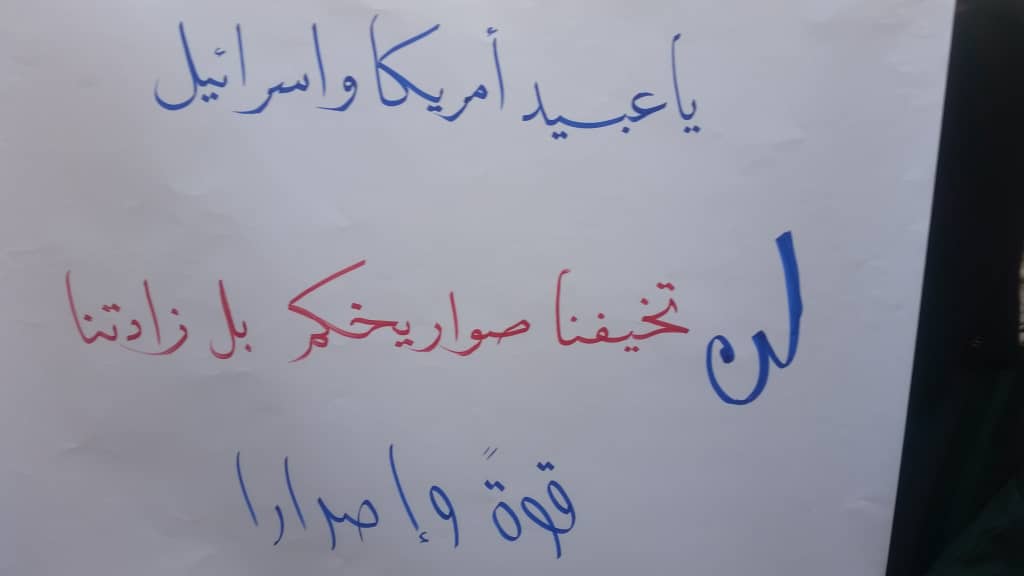 يا عبيد أمريكا واسرائيل
لن تخيفنا صواريخكم بل زادتنا
قوةً وإصرارا